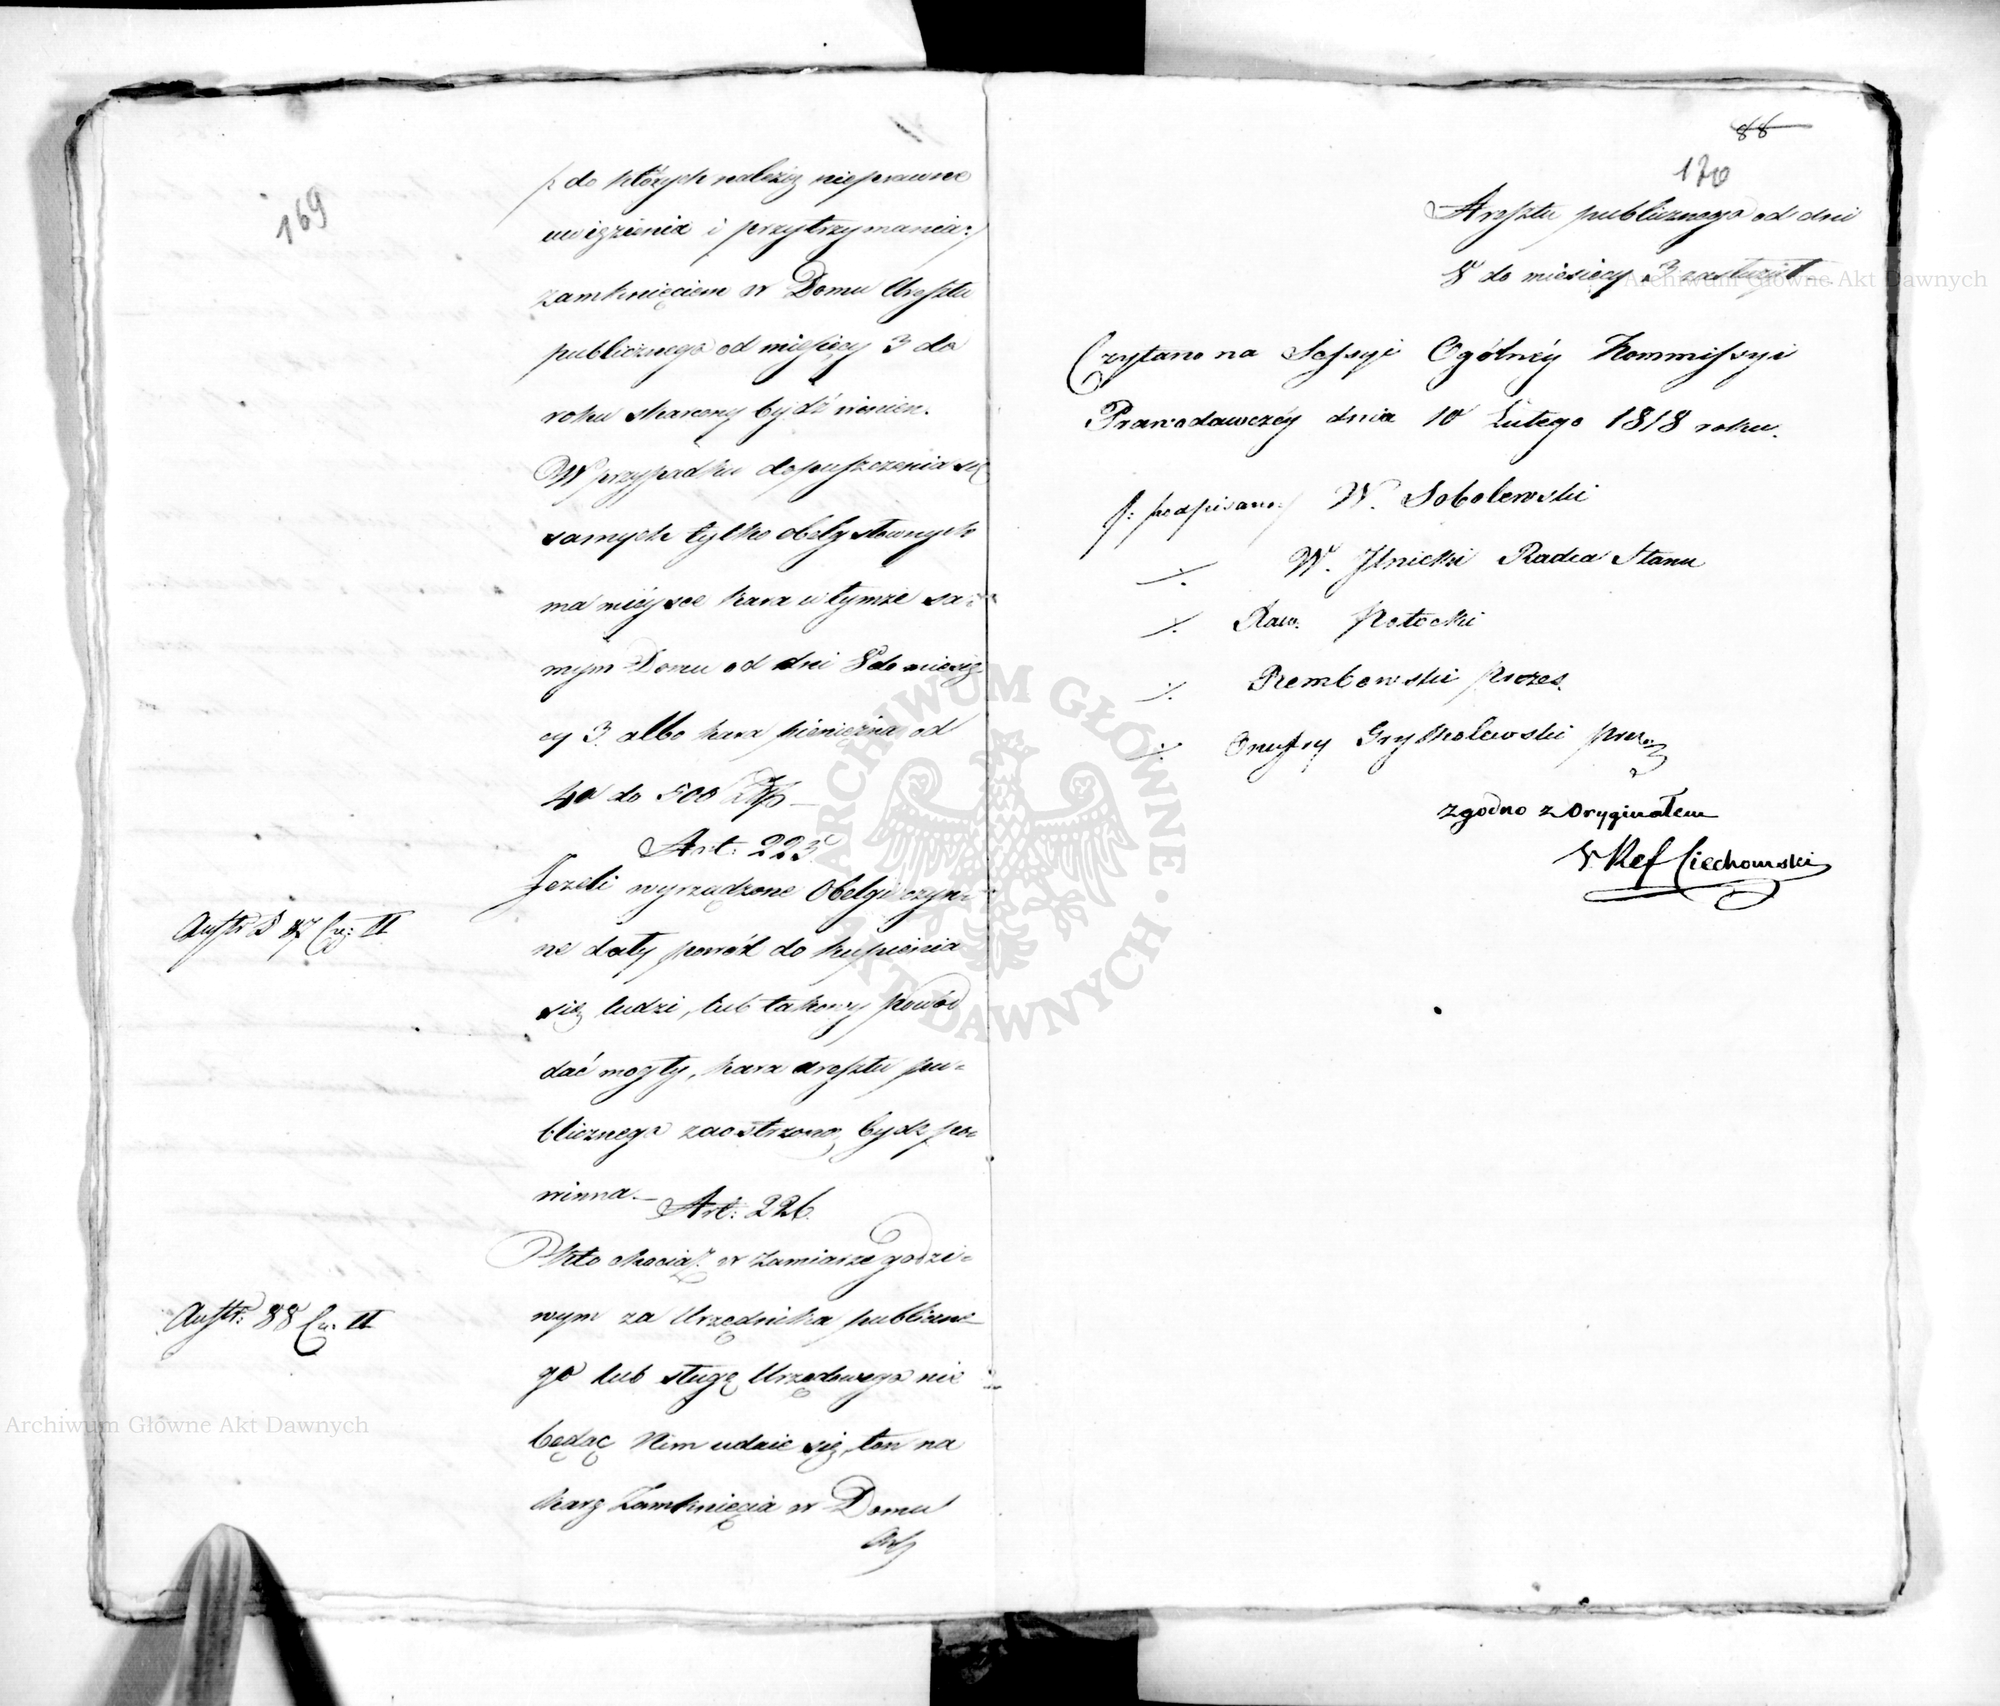 169
/: do których należą nieprawne
uwięzienia i przytrzymania :/
zamknięciem w Domu Aresztu
publicznego od miesięcy 3 do
roku skarany bydź winien.
W przypadku dopuszczenia się
samych tylko obelg słownych
ma miéysce kara w tymże sa=
mym Domu od dni 8 do miesię
cy 3. albo kara pieniężna od
40 do 500 Złp –
Art: 225.
Jeżeli wyrządzone Obelgi czyn=
ne dały powód do kupienia
się ludzi, lub takowy powód
dać mogły, kara aresztu pu=
blicznego zaostrzoną bydź po=
winna. –
Austr § 87 Cz: II
Art: 226.
Kto chociaż w zamiarze godzi=
wym za Urzędnika publiczne=
go lub sługę Urzędowego nie
będąc Nim udaie się, ten na
karę Zamknięcia w Domu
Are
Austr: 88 Cz. II
Archiwum Główne Akt Dawnych
88
170
Aresztu publicznego od dni
8 do miesięcy 3 zasłużył.
Archiwum Główne Akt Dawnych
Czytano na Sessyi Ogólnéy Kommissyi
Prawodawczéy dnia 10 Lutego 1818 roku.
/: podpisano :/ W. Sobolewski
./. W. Jlnicki Radca Stanu
./. Potocki
./. Rembowski Prezes.
./. Onufry Gryskolewski
Zgodno z Oryginałem
Ref Ciechomski
ARCHIWUM GŁÓWNE AKT DAWNYCH